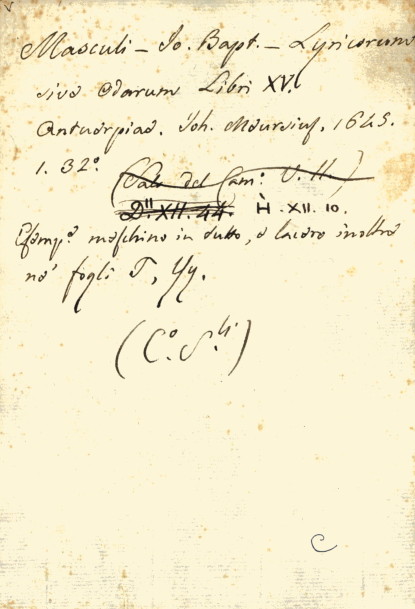 Masculi – Jo. Bapt. – Lyricorum
sive Odarum Libri XV.
Antuerpiae. Joh. Meursius, 1645.
1. 32º.
(Sala del Cam.º V. H.)
D.II XII. 44. Ḣ. XII. 10.
Esemp.e meschino in tutto, e lacero inoltre
ne' fogli T, Yy.
(C.º S.li)
C